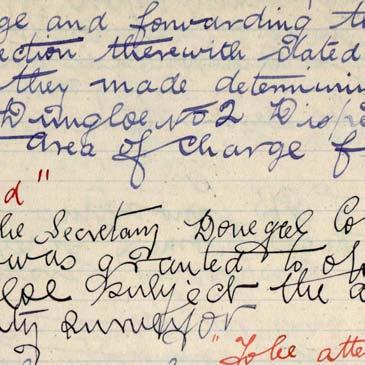 ge and forwarding t
ection therewith dated
they made determinin
Dungloe No 2 Disp
area of charge f
d"
he Secretary Donegal Co
was granted to of
loe subject the a
ty surveyor
"To be atte